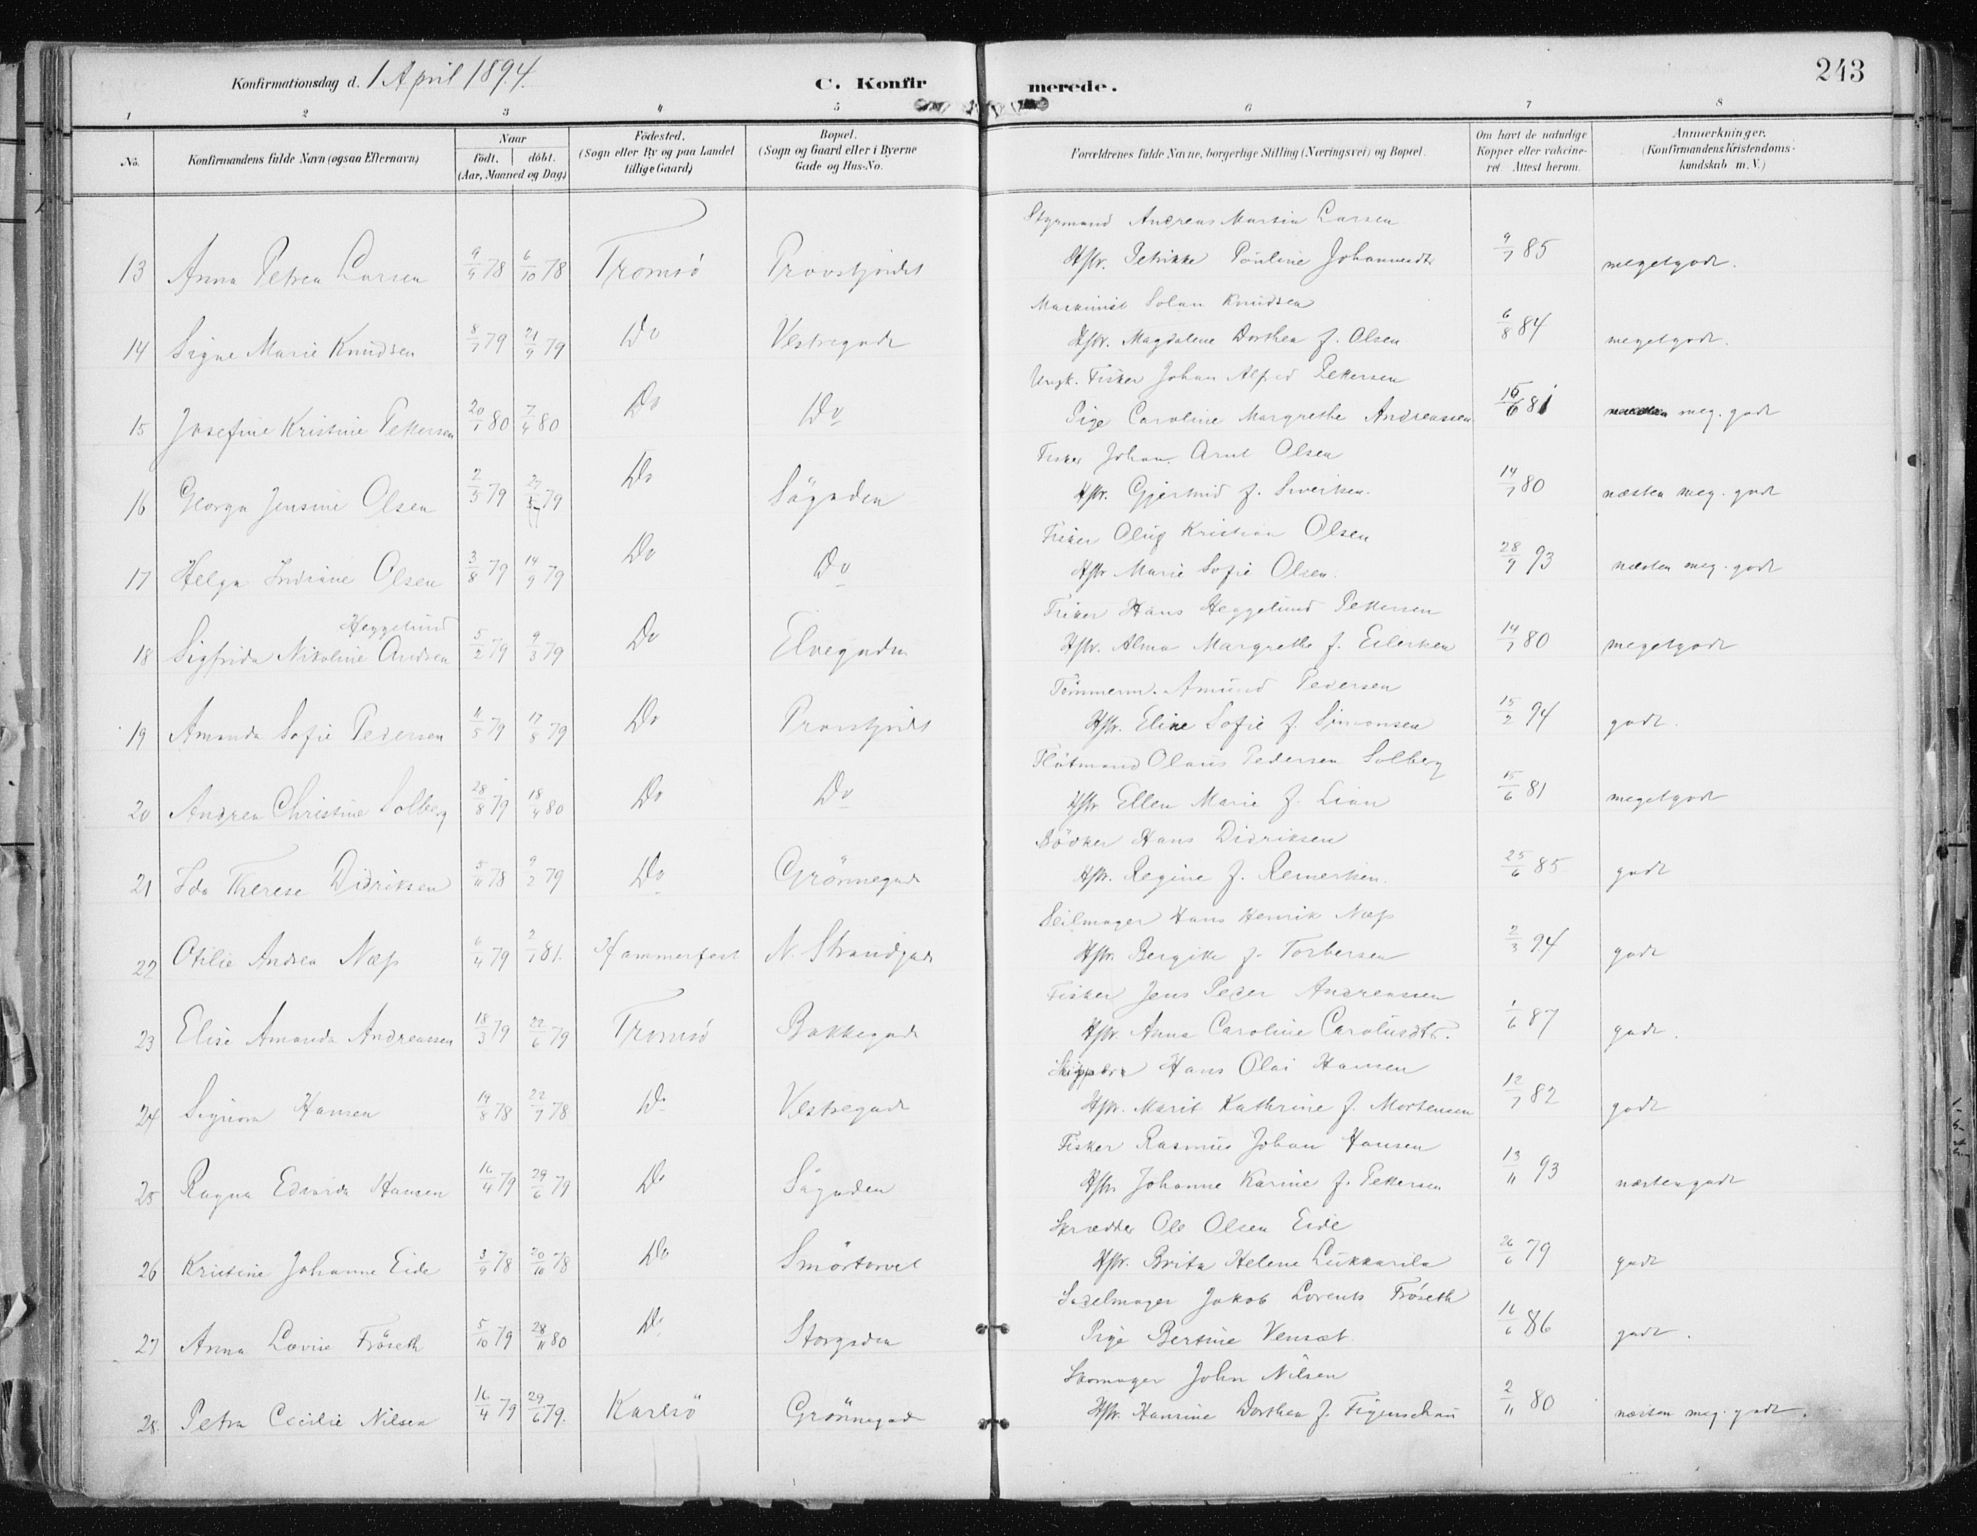 243
Konfirmationsdag d. 1 April 1894.
C. Konfirmerede.
1 2 3 4 5 6 7 8
No. Konfirmandens fulde Navn (ogsaa Efternavn) Naar født. døbt. (Aar, Maaned og Dag) Fødested. (Sogn eller By og paa Landet tillige Gaard) Bopæl. (Sogn og Gaard eller i Byerne Gade og Hus-No. Forældrenes fulde Navne, borgerlige Stilling (Næringsvei) og Bopæl. Om havt de naturlige Kopper eller vakcineret. Attest herom. Anmærkninger. (Konfirmandens Kristendomskundskab m. V.)
Styrmand Andreas Martin Larsen
13 Anna Petrea Larsen 9/9 78 6/10 78 Tromsö Provstjordet Hstr. Petrikke Pauline Johannesdtr 9/7 85 megetgodt.
Maskinist Solan Knudsen
14 Signe Marie Knudsen 8/7 79 21/9 79 Do Vestregade Hstr. Magdalene Dorthea f. Olsen 6/8 84 megetgodt.
Ungk. Fisker Johan Alfred Pettersen
15 Josefine Kristine Pettersen 20/1 80 7/4 80 Do Do Pige Caroline Margrethe Andreassen 16/6 81 meg. godt
Fisker Johan Arnt Olsen
16 Georga Jensine Olsen 2/3 79 79 Do Sögaden Hstr. Gjertrud f. Sivertsen. 14/7 80 næsten meg. godt
Fisker Oluf Kristian Olsen
17 Helga Indiane Olsen 3/8 79 14/9 79 Do Do Hstr Marie Sofie Olsen. 28/9 93 næsten meg. godt
Heggelund Fisker Hans Heggelund Pettersen
18 Sigfrida Nikoline Andrea 5/2 79 9/3 79 Do Elvegaden Hstr. Alma Margrethe f. Eilertsen 14/7 80 megetgodt
Tömmerm. Amund Pedersen
19 Amanda Sofie Pedersen 11/5 79 17/8 79 Do Provstjordet Hstr. Eline Sofie f. Simonsen 15/2 94 godt.
Flötmand Olaus Pedersen Solberg
20 Andrea Christine Solberg 28/8 79 18/4 80 Do Do Hstr Ellen Marie f. Lian 15/6 81 megetgodt
Bödker Hans Didriksen
21 Ida Therese Didriksen 5/11 78 9/2 79 Do Grönnegad Hstr. Regine f. Reinertsen. 25/6 85 godt
Seilmager Hans Henrik Næss
22 Otilie Andrea Næss 6/4 79 2/7 81. Hammerfest N. Strandgad Hstr. Bergitte f. Torbersen 2/3 94 godt
Fisker Jens Peder Andreassen
23 Elise Amanda Andreassen 18/3 79 22/6 79 Tromsö Bakkegad Hstr. Anna Caroline Carolusdtr. 1/6 87 godt.
Skipper Hans Olai Hansen
24 Signora Hansen 19/8 78 22/9 78 Do Vestregad Hstr. Marit Kathrine f. Mortensen 12/7 82 godt
Fisker Rasmus Johan Hansen
25 Ragna Edvarda Hansen 16/4 79 29/6 79 Do Sögaden Hstr Johanne Karine f. Pettersen 13/11 93 næstengodt
Skrædder Ole Olsen Eide
26 Kristine Johanne Eide 3/9 78 20/10 78 Do Smörtorvet Hstr. Brita Helene Lukkarila 26/6 79 godt
Sadelmager Jakob Lorents Fröseth
27 Anna Lovise Fröseth 5/10 79 28/11 80 Do Storgaden Pige Bertine Vensæt 16/6 86 godt.
Skomager John Nilsen
28 Petra Cecilie Nilsen 16/4 79 29/6 79. Karlsö Grönnegad Hstr. Hansine Dorthea f. Figenschau 2/11 80 næsten meg. godt.